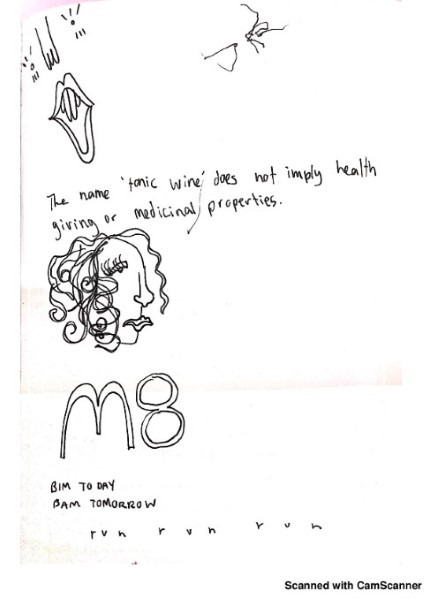 The name 'tonic wine' does not imply health
giving or medicinal properties.
M8
BIM TODAY
BAM TOMORROW
run run run
Scanned with CamScanner